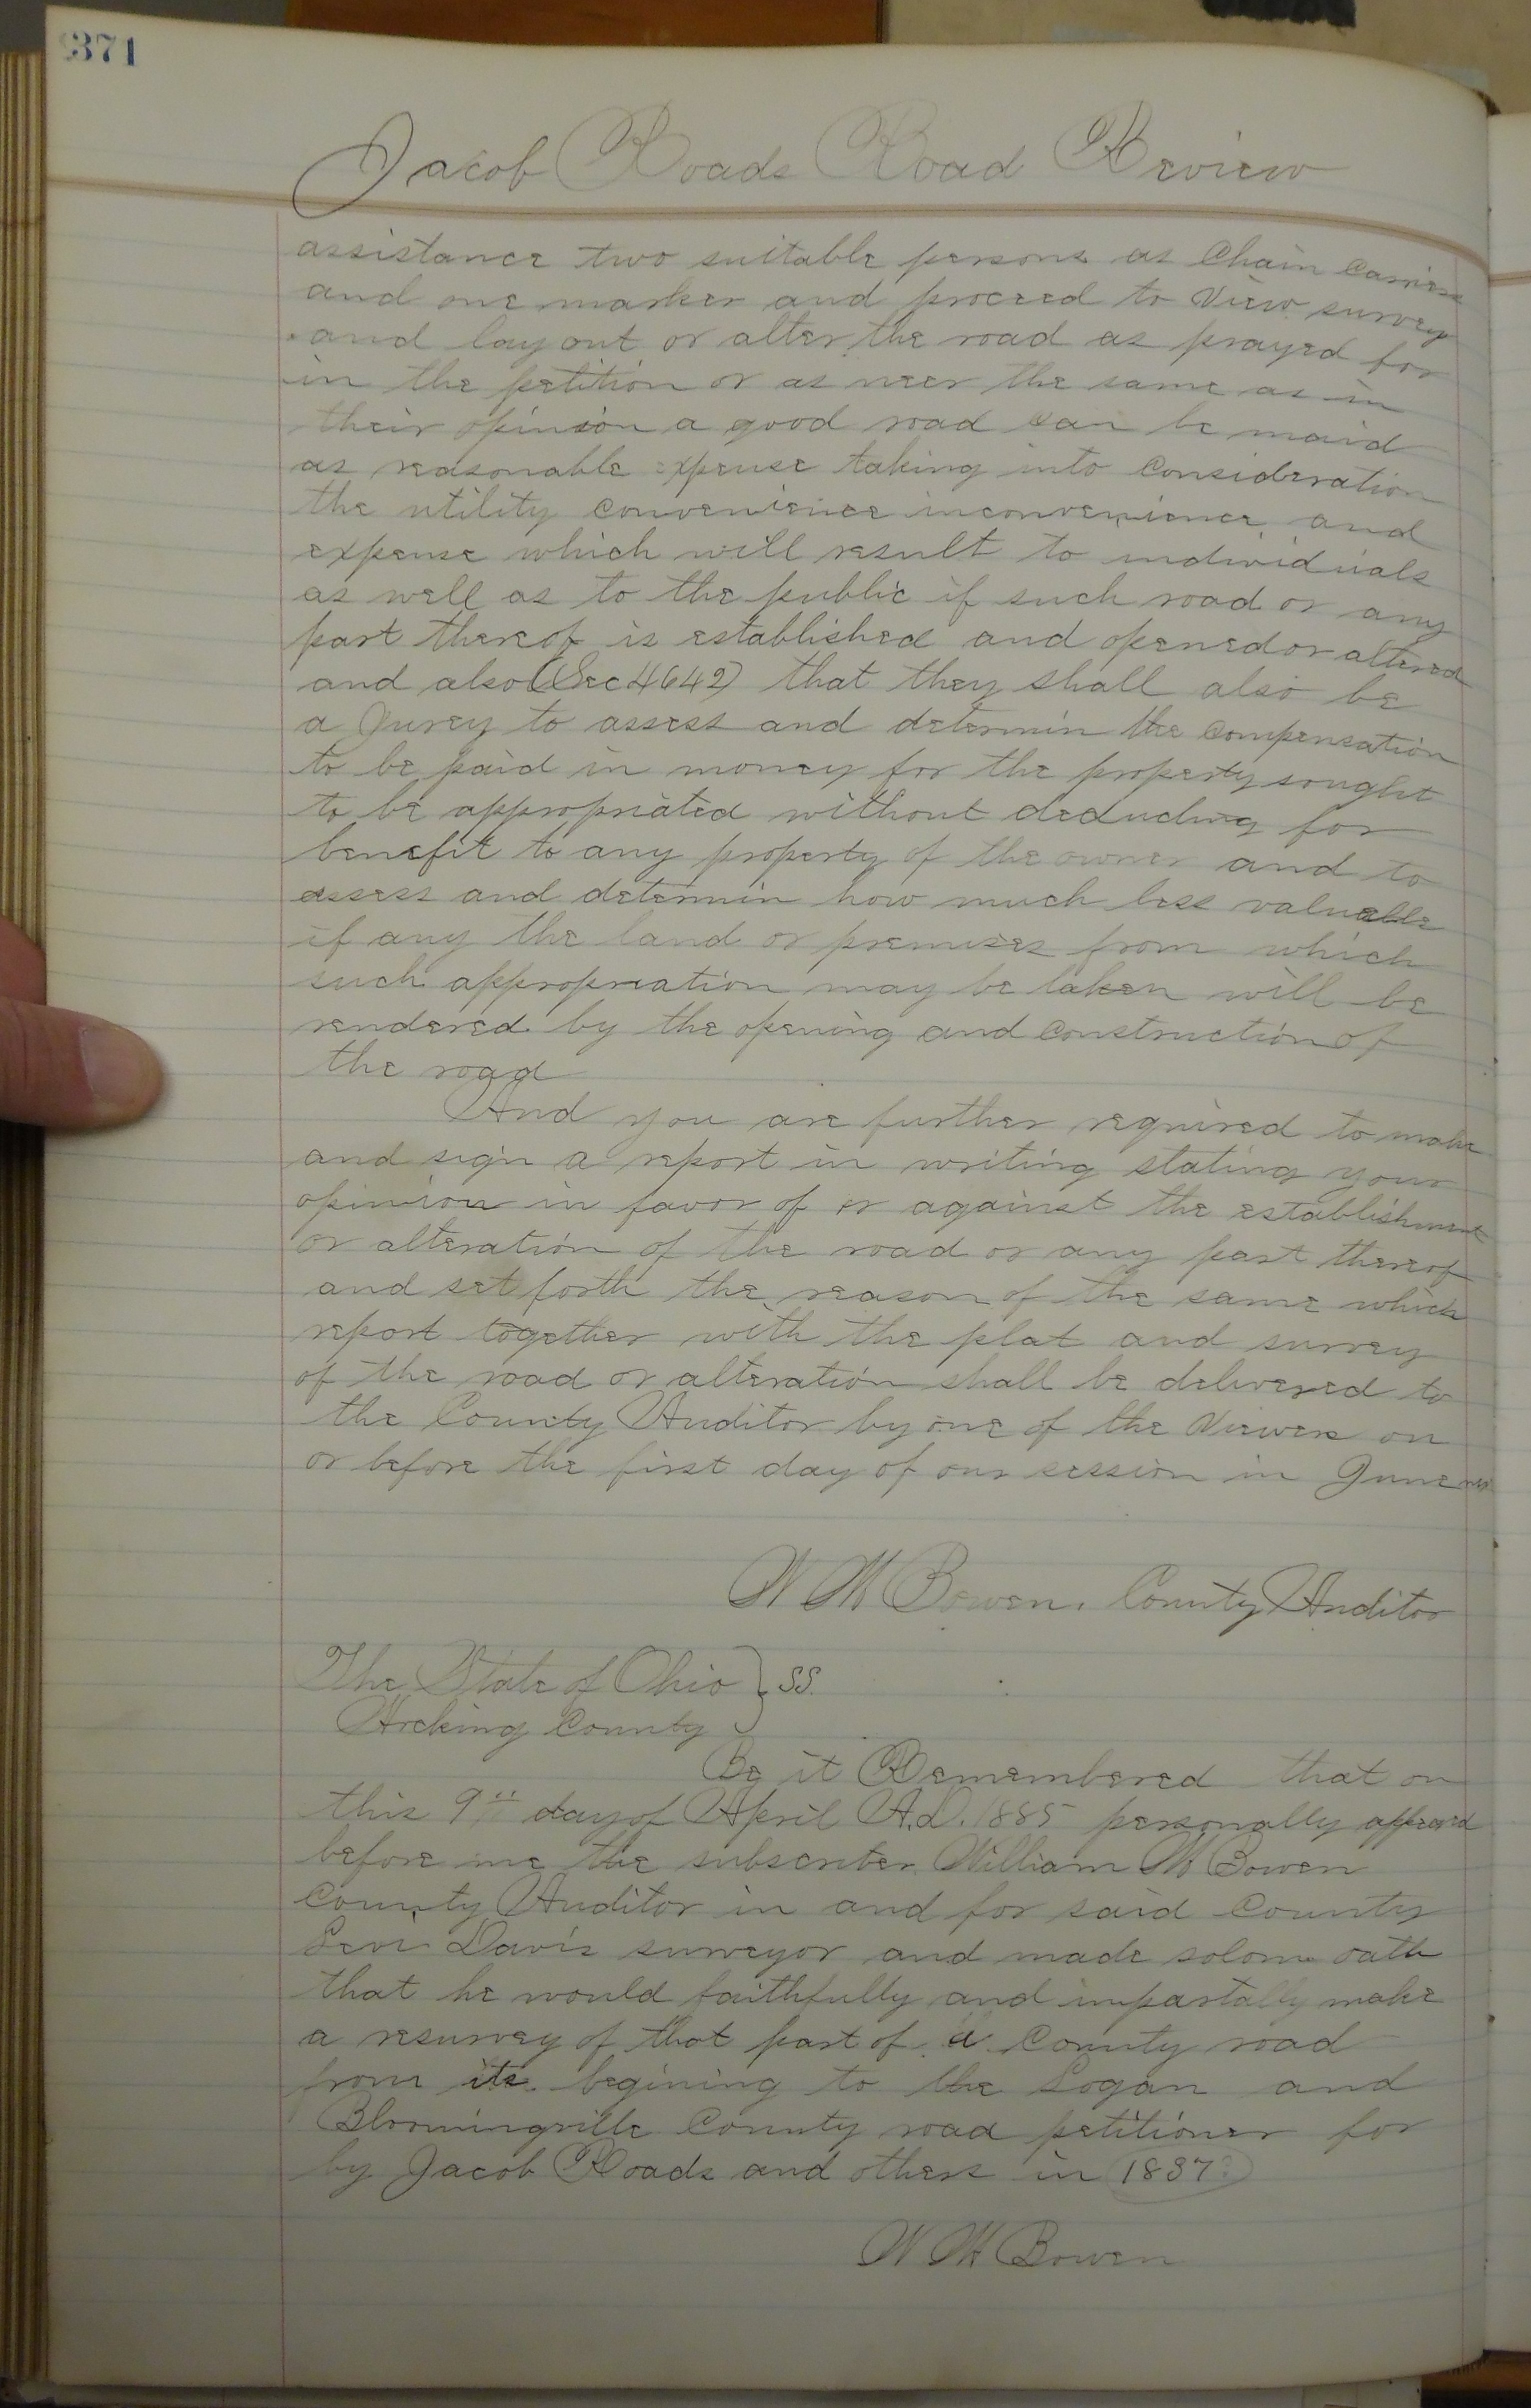 371
Jacob Roads Road Review
assistance two suitable persons as Chain Carriers
and one marker and proceed to View survey
and lay out or alter the road as prayed for
in the petition or as neer the same as in
their opinion a good road can be maid
as reasonable expense taking into Consideration
the utility convenience inconvenience and
expense which will result to individuals
as well as to the public if such road or any
part thereof is established and opened or altered
and also (Sec 4642) that they shall also be
a Jurey to assess and determin the compensation
to be paid in money for the property sought
to be appropriated without deducting for
benefit to any property of the owner and to
assess and determin how much less valuable
if any the land or premises from which
such appropriation may be taken will be
rendered by the opening and construction of
the road
And you are further required to make
and sign a report in writing stating your
opinion in favor of or against the establishment
or alteration of the road or any part thereof
and set forth the reason of the same which
report together with the plat and survey
of the road or alteration shall be delivered to
the County Auditor by one of the Viewers on
or before the first day of our session in June
W M Bowen. County Auditor
The State of Ohio } SS.
Hocking County
Be it Remembered that on
this 9th day of April A.D. 1885 personally appeared
before me the subscriber William M Bowen
County Auditor in and for said County
Levi Davis surveyor and made solom oath
that he would faithfully and impartally make
a resurvey of that part of a County road
from its begining to the Logan and
Bloomingville County road petitioner for
by Jacob Roads and others in 1837
W M Bowen